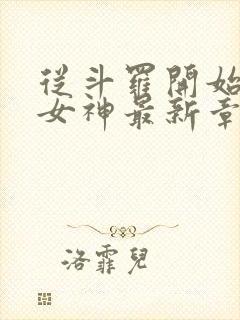 從斗羅開始
女神最新章
洛霏兒